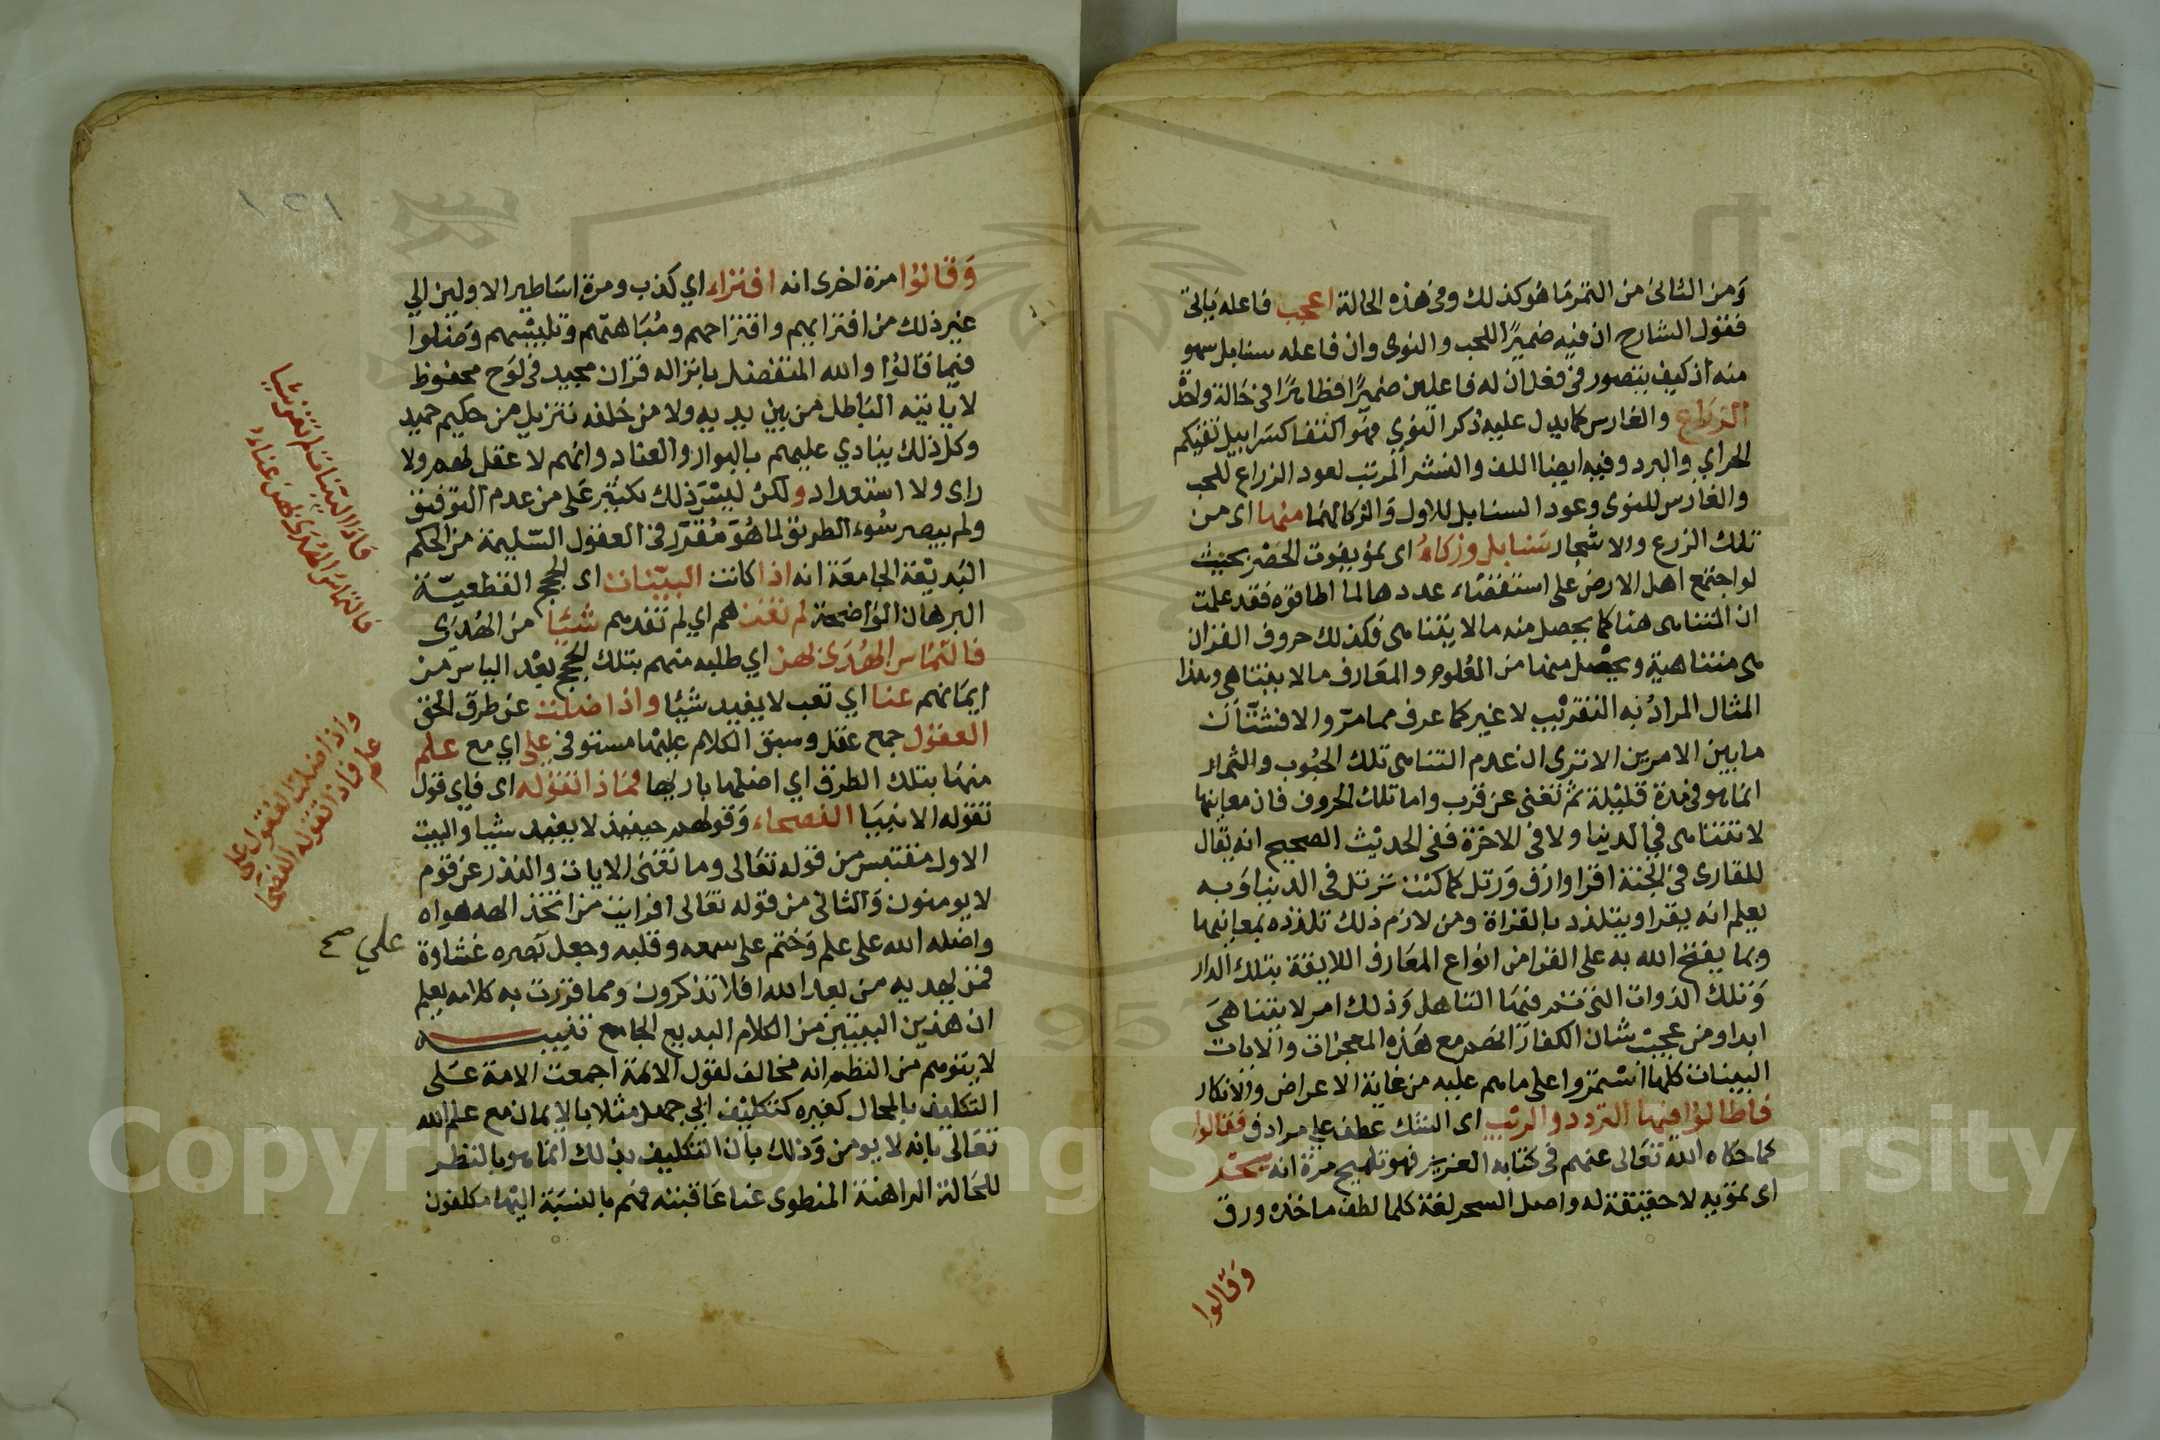 ومن الثانى من التمر ما هو كذلك وفى هذه الحالة اعجب فاعله يالى
فقول الشارح ان فيه ضميرا للحب والنوى وان فاعله سنابل سهو
منه اذ كيف يتصور فى فعل ان له فاعلين ضميرا فظاهرا فى حالة واحدة
الزراع والغارس كما يدل عليه ذكر النوي فهو اكتفا كسرابيل تقيكم
الحر اي والبرد وفيه ايضا اللف والنشر المرتب لعود الزراع للحب
والغارس للنوى وعود السنابل للاول والزكا لهما منها اى من
تلك الزرع والاشجار سنابل وزكاء اى نمو يفوت الحصر بحيث
لو اجتمع اهل الارض على استقصاء عددها لما اطاقوه فقد علمت
ان المتناهى هنا كما يحصل منه ما لا يتناهى فكذلك حروف القران
هى متناهية ويحصل منها من العلوم والمعارف ما لا يتناهى وهذا
المثال المراد به التقريب لا غير كما عرف مما مر والا فشتان
ما بين الامرين الا ترى ان عدم التناهى تلك الحبوب والثمار
انما هو فى مدة قليلة ثم تفنى عن قرب واما تلك الحروف فان معانيها
لا تتناهى في الدنيا ولا فى الاخرة ففى الحديث الصحيح انه يقال
للقارى فى الجنة اقرا وارق ورتل كما كنت ترتل فى الدنيا وبه
يعلم انه يقرا ويتلذذ بالقراة ومن لازم ذلك تلذذه بمعانيها
وبما يفتح الله به على القرا من انواع المعارف اللايقة بتلك الدار
وتلك الذوات التى فيها التاهل وذلك امر لا يتناهى
ابدا ومن عجب شان الكفار انهم مع هذه المعجزات والايات
البينات كلها استمروا على ما هم عليه من غاية الاعراض والانكار
فاطالوا فيها التردد والريب اى الشك عطف علي مرادف فقالوا
كما حكاه الله تعالى عنهم فى كتابه العزيز فهو تلميح مرة انه سحر
اى تمويه لا حقيقة له واصل السحر لغة كلما لطف ماخذه ورق
وقالوا
١٢١
وقالوا مرة اخرى انه افتراء اي كذب ومرة اساطير الاولين الي
غير ذلك من افترايهم واقتراحهم ومباهتهم وتلبيسهم وضلوا
فيما قالوا والله المتفضل بانزاله قران مجيد فى لوح محفوظ
لا ياتيه الباطل من بين يديه ولا من خلفه تنزيل من حكيم حميد
وكل ذلك ينادي عليهم بالبوار والعناد وانهم لا عقل لهم ولا
راى ولا استعداد ولكن ليس ذلك بكثير على من عدم التوفيق
ولم يبصر سوء الطريق لما هو مقرر فى العقول السليمة من الحكم
البديعة الجامعة انه اذا كانت البينات اى الحجج القطعية
البرهان الواضحة لم تغنهم اي لم تفدهم شيئا من الهدى
فالتماس الهدى بهن اي طلبه منهم بتلك الحجج بعد الياس من
ايمانهم عنا اي تعب لا يفيد شيئا واذا ضلت عن طرق الحق
العقول جمع عقل وسبق الكلام عليها مستوفى علي اي مع علم
منها بتلك الطرق اي اضلها باريها فماذا تقوله اى فاى قول
تقوله الانبيا الفصحاء وقولهم حينيذ لا يفيد شيا والبيت
الاول مقتبس من قوله تعالى وما تغنى الايات والنذر عن قوم
لا يومنون والثانى من قوله تعالى افرايت من اتخذ الهه هواه
واضله الله على علم وختم على سمعه وقلبه وجعل بصره غشاوة
فمن يهديه من بعد الله افلا تذكرون ومما قررت به كلامه يعلم
ان هذين البيتين من الكلام البديع الجامع تنبيه
لا يتوهم من النظم انه مخالف لقول الائمة اجمعت الامة على
التكليف بالمحال كغيره كتكليف ابي جهل مثلا بالايمان مع علم الله
تعالى بانه لا يومن وذلك بان التكليف بذلك انما هو بالنظر
للحالة الراهنة المنطوى عنا عاقبته فهم بالنسبة اليها مكلفون
فاذا البينات لم تغن شيا
فالتماس الهدى بهن عناء
واذا ضلت العقول على
علم فماذا تقوله الفصحا
علي صح
Copyright © King Saud University